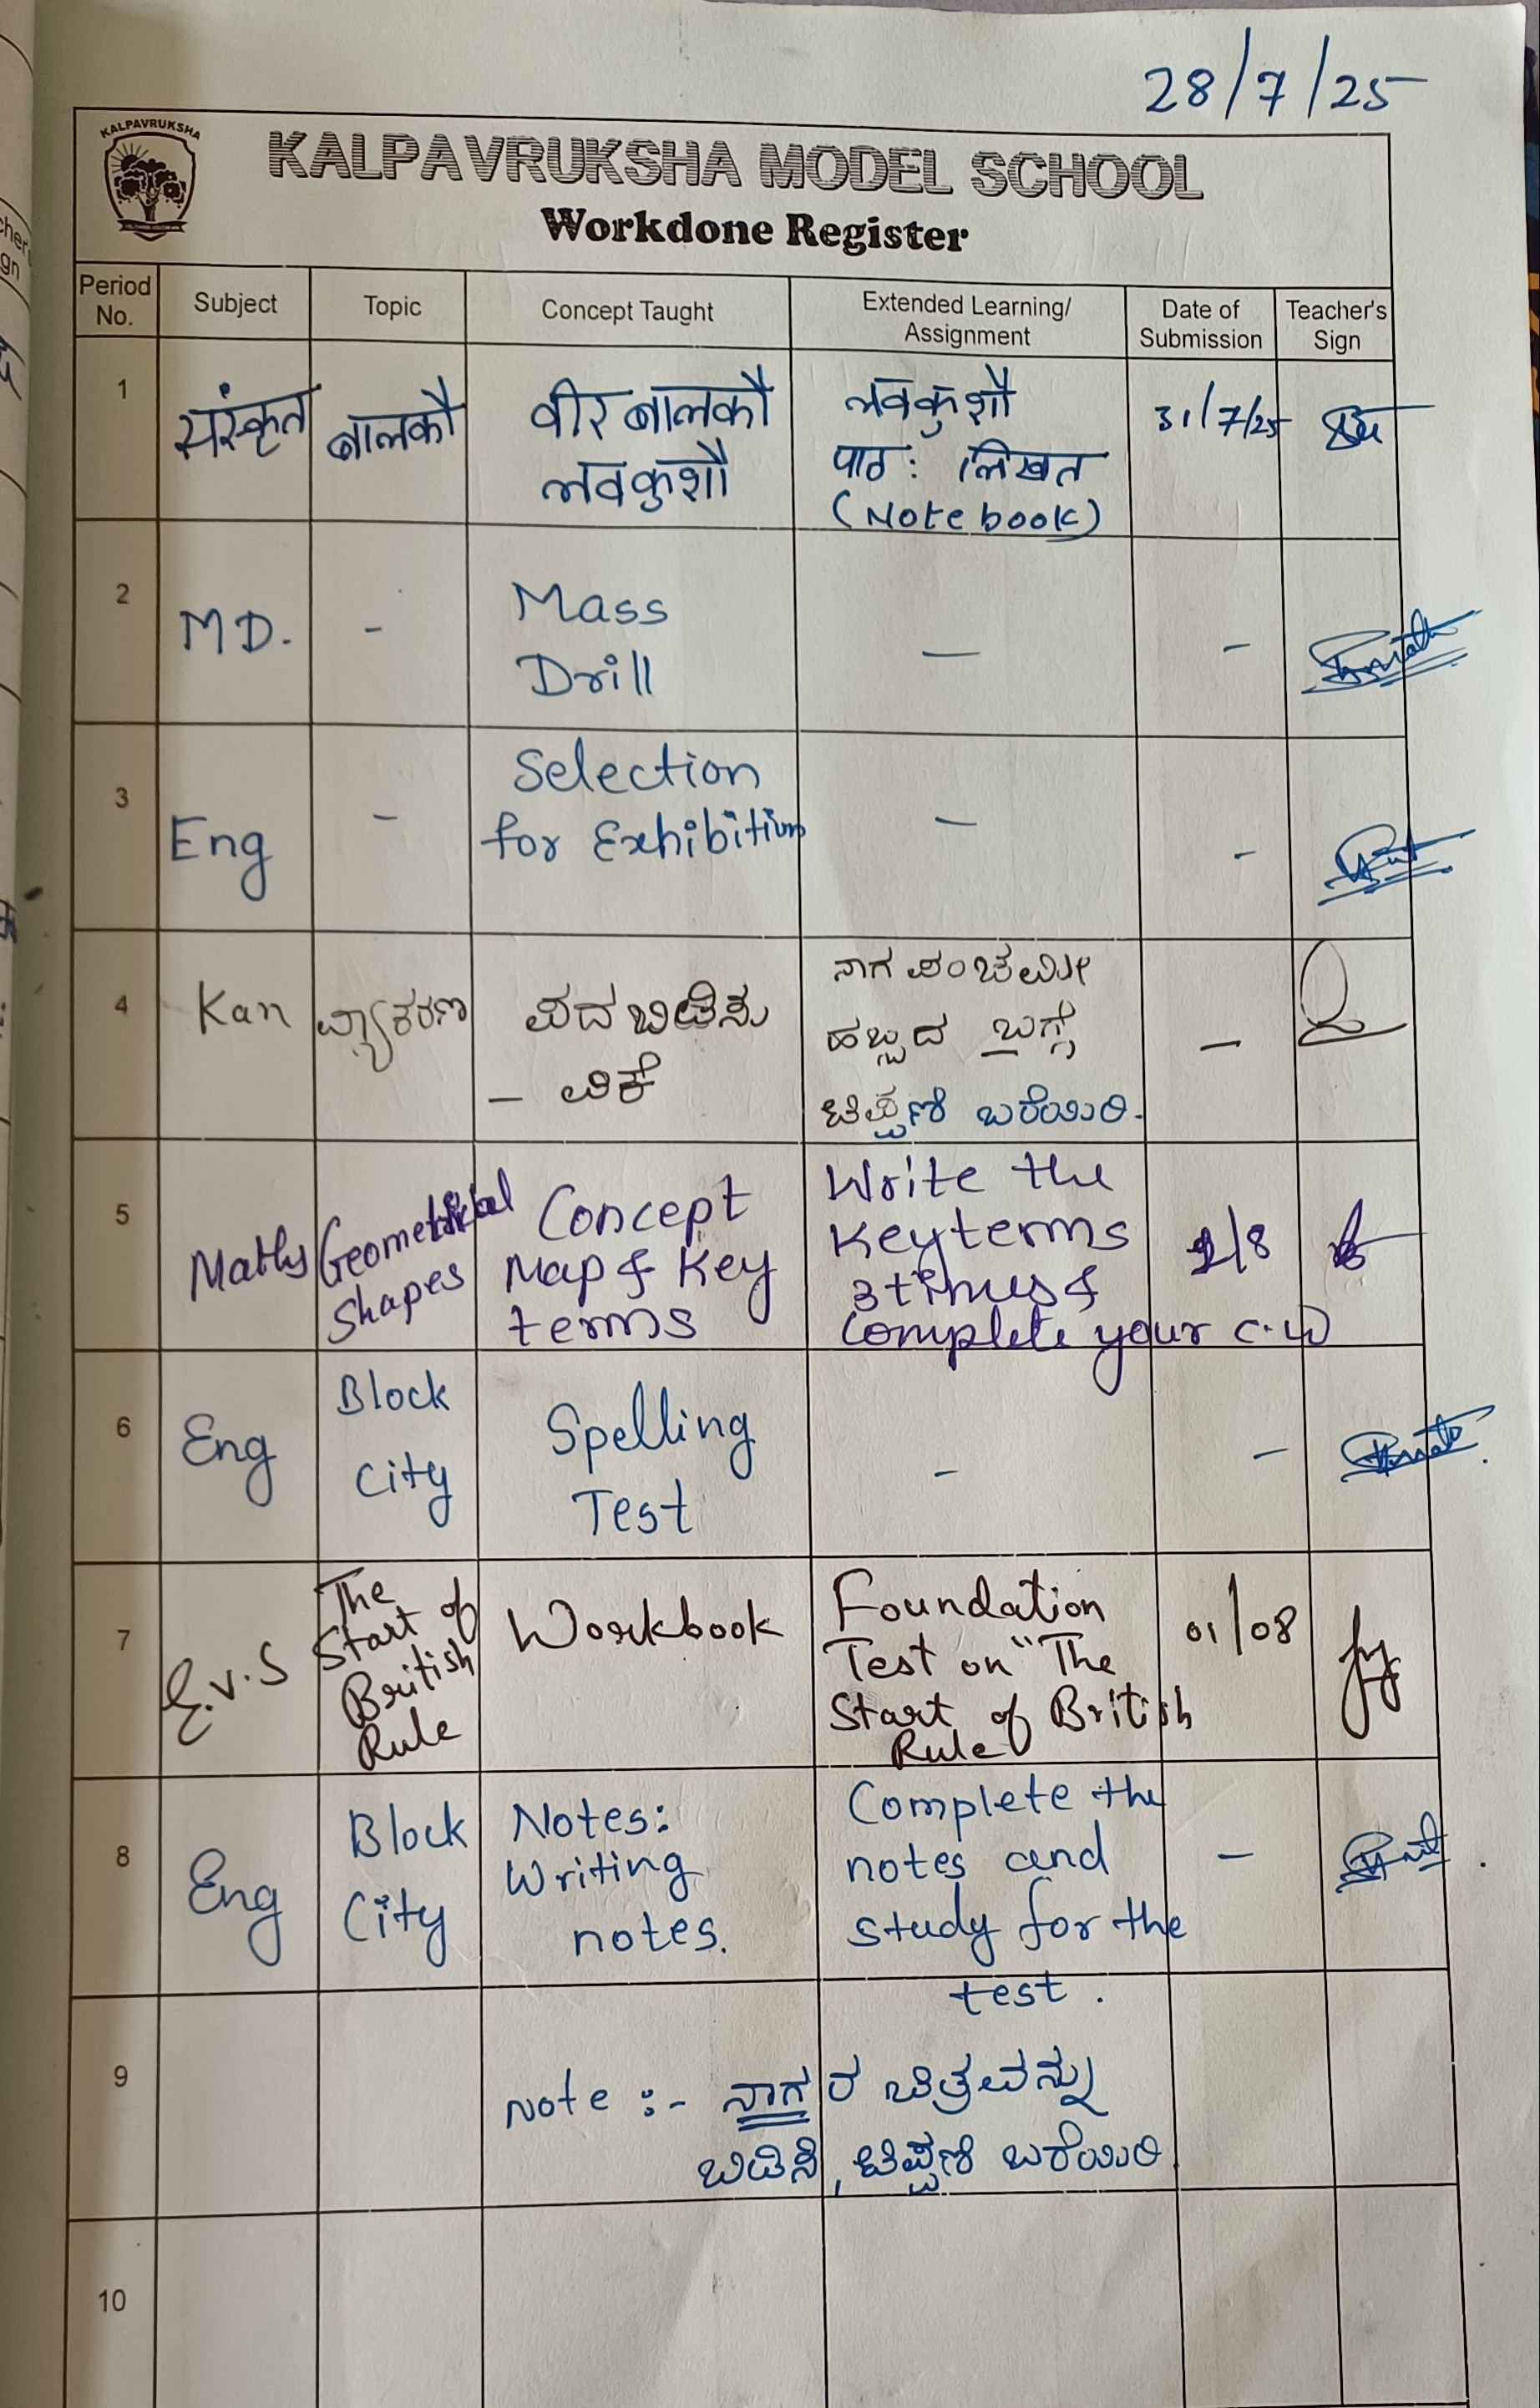 28/7/25
KALPAVRUKSHA
KALPAVRUKSHA MODEL SCHOOL
Workdone Register
Period No. Subject Topic Concept Taught Extended Learning/ Assignment Date of Submission Teacher's Sign
1 संस्कृत बालकौ वीर बालकौ लवकुशौ 31/7/25
लवकुशौ पाठ: लिखत
(Notebook)
2 MD. - Mass — -
Drill
3 Eng - Selection — -
for Exhibition
4 Kan ವ್ಯಾಕರಣ ಪದ ಬಿಡಿಸು ನಾಗ ಪಂಚಮೀ —
- ವಿಕೆ ಹಬ್ಬದ ಬಗ್ಗೆ
ಟಿಪ್ಪಣಿ ಬರೆಯಿರಿ.
5 Maths Geometrical Concept Write the 2/8
Shapes Map & Key Keyterms
terms 3 times &
Complete your C.W
6 Eng Block Spelling - -
City Test
7 E.V.S The Workbook Foundation 01/08
Start of Test on "The
British Start of British
Rule Rule
8 Eng Block Notes: Complete the -
City Writing notes and
notes. study for the
test.
9 Note :- ನಾಗರ ಚಿತ್ರವನ್ನು
ಬಿಡಿಸಿ, ಟಿಪ್ಪಣಿ ಬರೆಯಿರಿ
10